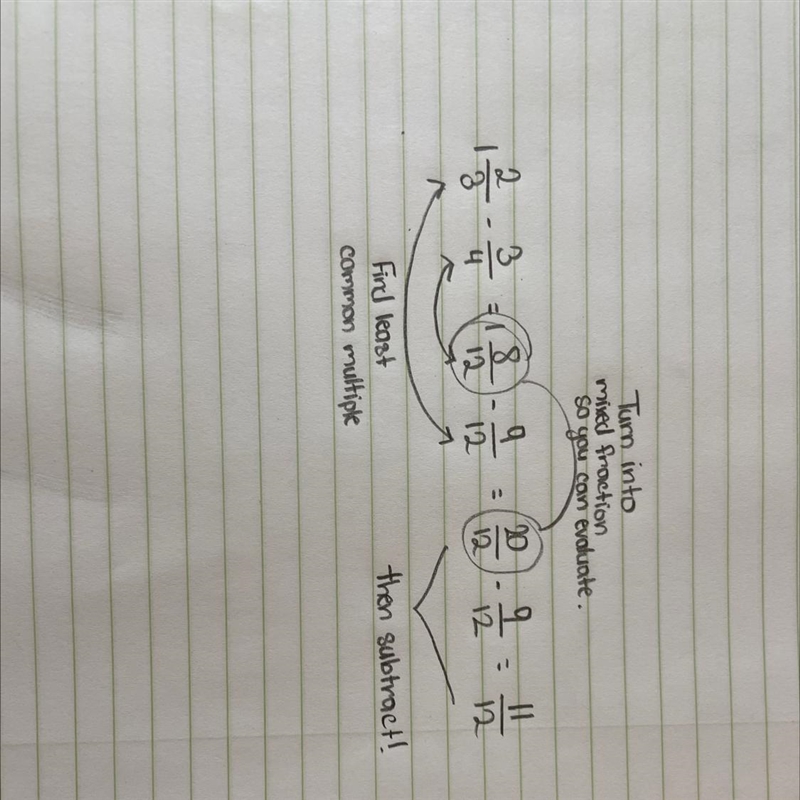 Turn into
mixed fraction
so you can evaluate.
1 2/3 - 3/4 = 1 8/12 - 9/12 = 20/12 - 9/12 = 11/12
Find least
common multiple
then subtract!